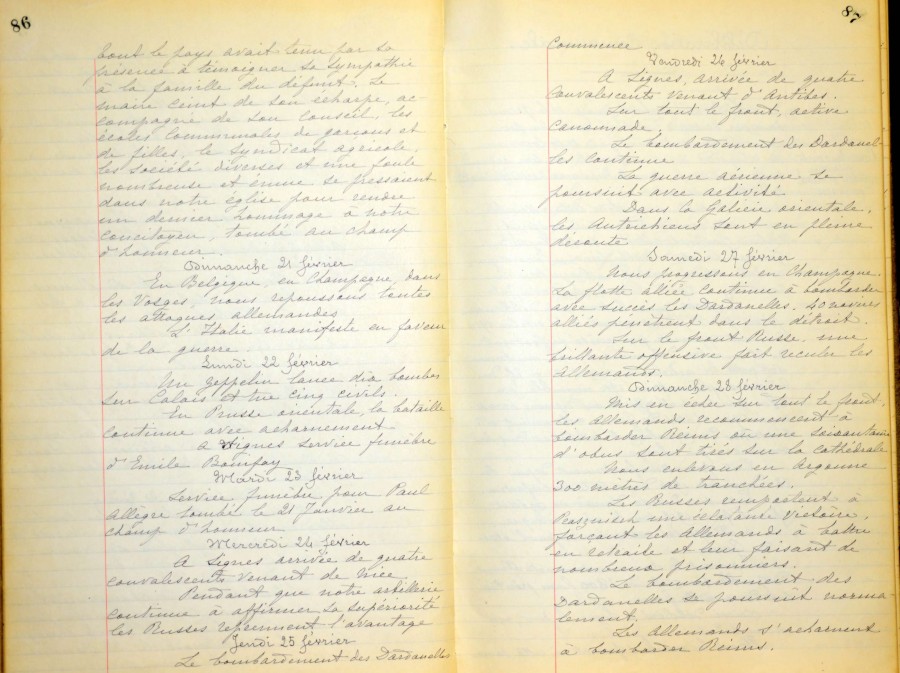 86
tout le pays avait tenu par sa
présence à témoigner sa sympathie
à la famille du défunt. Le
maire ceint de son écharpe, ac
compagné de son Conseil, les
écoles Communales de garçons et
de filles, le Syndicat agricole,
les société diverses et une foule
nombreuse et émue se pressaient
dans notre église pour rendre
un dernier hommage à notre
concitoyen, tombé au Champ
d'honneur.
Dimanche 21 février
En Belgique, en Champagne, dans
les Vosges, nous repoussons toutes
les attaques allemandes
L'Italie manifeste en faveur
de la guerre.
Lundi 22 février
Un zeppelin lance dix bombes
sur Calais et tue cinq civils.
En Prusse orientale, la bataille
continue avec acharnement
A Signes service funèbre
d'Emile Bonifay
Mardi 23 février
Service funèbre pour Paul
Allègre tombé le 21 Janvier au
champ d'honneur
Mercredi 24 février
A Signes arrivée de quatre
convalescents venant de Nice
Pendant que notre artillerie
continue à affirmer sa supériorité
les Russes reprennent l'avantage
Jeudi 25 février
Le bombardement des Dardanelles
87
Commence
Vendredi 26 février
A Signes, arrivée de quatre
Convalescents venant d'Antibes.
Sur tout le front, active
Canonnade.
Le bombardement des Dardanel-
les continue
La guerre aérienne se
poursuit avec activité
Dans la Galicie orientale,
les Autrichiens sont en pleine
déroute
Samedi 27 février
Nous progressons en Champagne.
La flotte alliée continue à bombarder
avec succès les Dardanelles. 40 navires
alliés pénètrent dans le détroit.
Sur le front Russe, une
brillante offensive fait reculer les
Allemands.
Dimanche 28 février
Mis en échec sur tout le front,
les Allemands recommencent à
bombarder Reims où une soixantaine
d'obus sont tirés sur la Cathédrale
Nous enlevons en Argonne
300 mètres de tranchées.
Les Russes remportent à
une éclatante Victoire,
forçant les Allemands à battre
en retraite et leur faisant de
nombreux prisonniers.
Le bombardement des
Dardanelles se poursuit norma-
lement.
Les Allemands s'acharnent
à bombarder Reims.